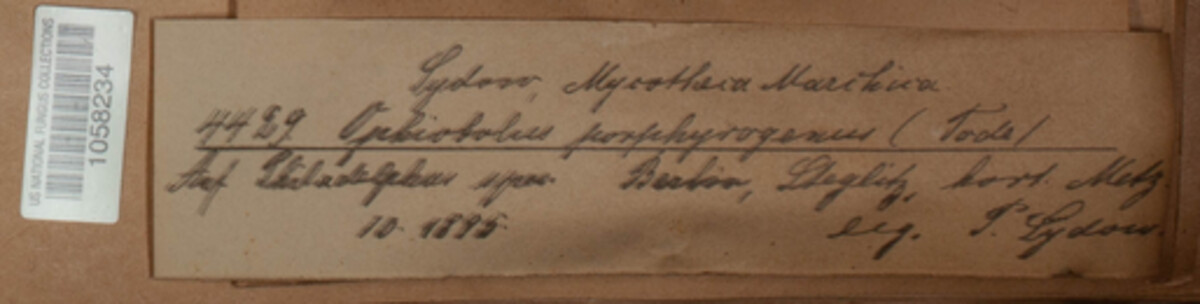 US NATIONAL FUNGUS COLLECTIONS
1058234
Sydow, Mycotheca Marchica.
4429 Ophiobolus porphyrogenus (Tode)
Auf Philadelphus spec. Berlin, Steglitz, hort. Metz.
10. 1895. leg. P. Sydow.